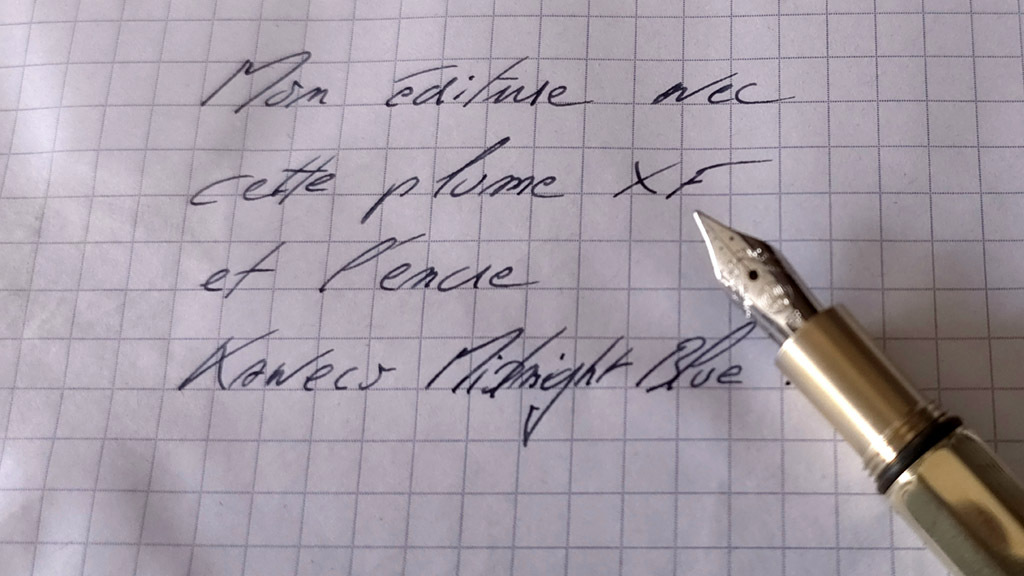 Mon écriture avec
cette plume XF
et l'encre
Kaweco Midnight Blue.